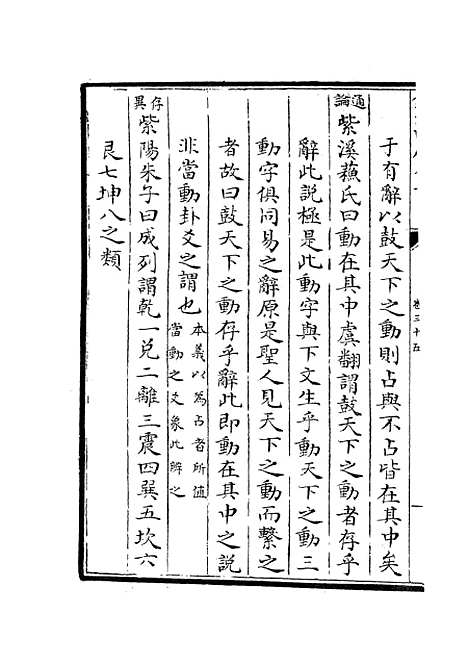 于有辭以鼓天下之動則占與不占皆在其中矣
通論紫溪蘓氏曰動在其中虞翻謂鼓天下之動者存乎
辭此說極是此動字與下文生乎動天下之動三
動字俱同易之辭原是聖人見天下之動而繫之
者故曰鼓天下之動存乎辭此即動在其中之說
非當動卦爻之謂也本義以為占者所值當動之爻象此解之
存異紫陽朱子曰成列謂乾一兑二離三震四巽五坎六
艮七坤八之類
卷三十五